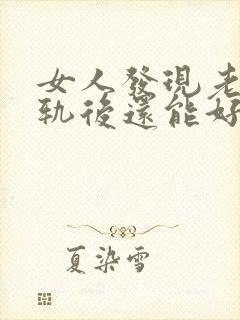 女人發現老
軌後還能好
夏染雪